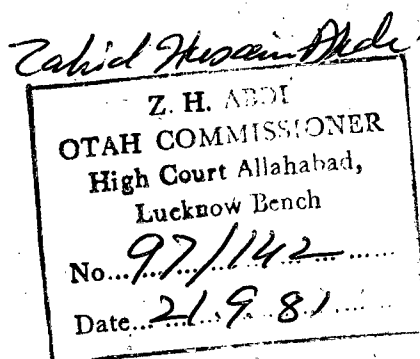 Zahid Husain Abdi
Z. H. ABDI
OTAH COMMISSIONER
High Court Allahabad,
Lucknow Bench
No...97/142......
Date...21.9.81....